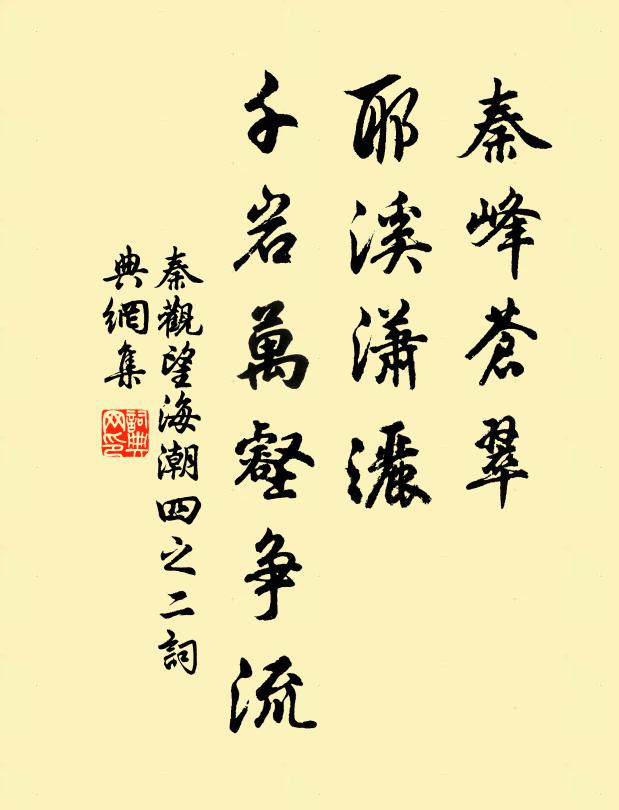 秦峰蒼翠
耶溪瀟灑
千岩萬壑爭流
秦觀望海潮四之二詞
典網集
詞典網印